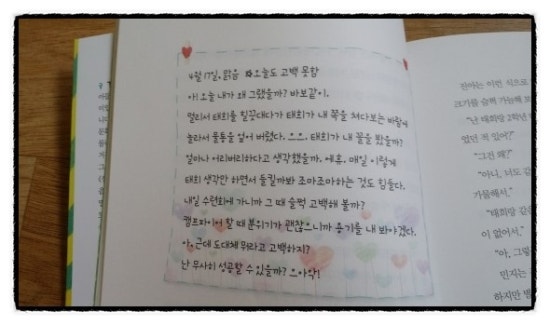 4월 17일, 맑음 오늘도 고백 못함
아! 오늘 내가 왜 그랬을까? 바보같이.
멀리서 태희를 힐끗대다가 태희가 내 쪽을 쳐다보는 바람에
놀라서 물통을 엎어 버렸다. 으으. 태희가 내 꼴을 봤을까?
얼마나 어리버리하다고 생각했을까. 에휴. 매일 이렇게
태희 생각만 하면서 들킬까봐 조마조마하는 것도 힘들다.
내일 수련회에 가니까 그 때 슬쩍 고백해 볼까?
캠프파이어 할 때 분위기가 괜찮으니까 용기를 내 봐야겠다.
아, 근데 도대체 뭐라고 고백하지?
난 무사히 성공할 수 있을까? 으아악!
진아는 이런 식으로
"난 태희랑 2학년
었던 적 있어?"
"그건 왜?"
"아니, 너도 같
가물해서."
"태희랑 같은
이 없어서."
"아, 그렇
민지는
하지만 방